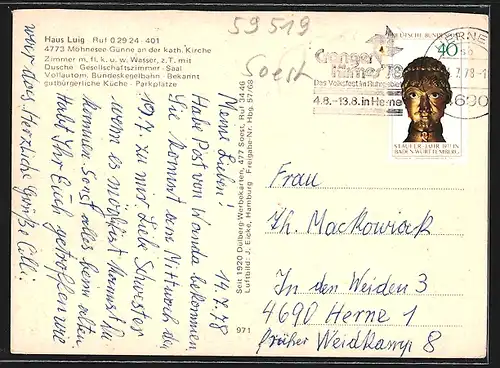 Haus Luig Ruf 0 29 24 - 401
4773 Möhnesee-Günne an der kath. Kirche
Zimmer m. fl. k. u. w. Wasser, z. T. mit
Dusche Gesellschaftszimmer - Saal
Vollautom. Bundeskegelbahn - Bekannt
gutbürgerliche Küche - Parkplätze
59519
Soest
14.7.78
Meine Lieben!
Habe Post von Wanda bekommen
Sie kommt am Mittwoch den
19.7 zu mir. Lieb Schwester
wenn es möglich kommst Du
kommen sonst alles beim alten
Habt Ihr Euch getroffen wie
war das, Herzliche Grüße Cilli
Seit 1920 Dülberg-Werbekarten, 477 Soest, Ruf 34 46
Luftbild: J. Eicke, Hamburg Freigabe-Nr. Hbg. 57/68
971
Cranger
Kirmes 78
Das Volksfest im Ruhrgebiet
4.8.-13.8. in Herne
HERNE
7.78-1
4690
DEUTSCHE BUNDESPOST
40
STAUFER-JAHR 1977 IN
BADEN-WÜRTTEMBERG
Frau
Th. Mackowiack
In den Weiden 3
4690 Herne 1
früher Weidkamp 8